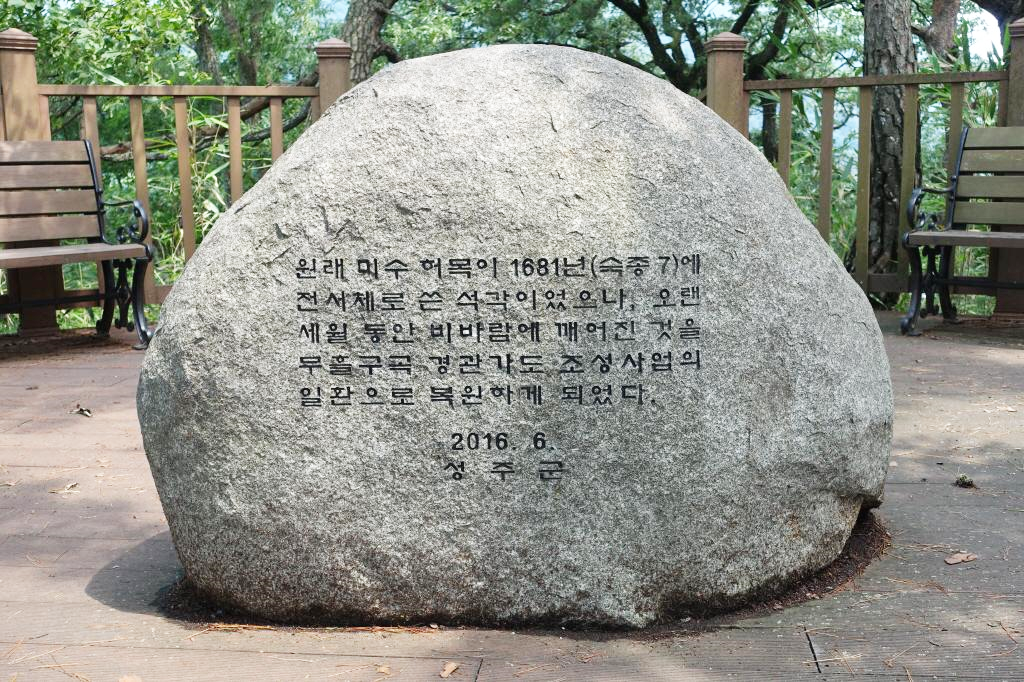 원래 미수 허목이 1681년(숙종 7)에
전서체로 쓴 석각이었으나, 오랜
세월 동안 비바람에 깨어진 것을
무흘구곡 경관가도 조성사업의
일환으로 복원하게 되었다.
2016. 6.
성주군